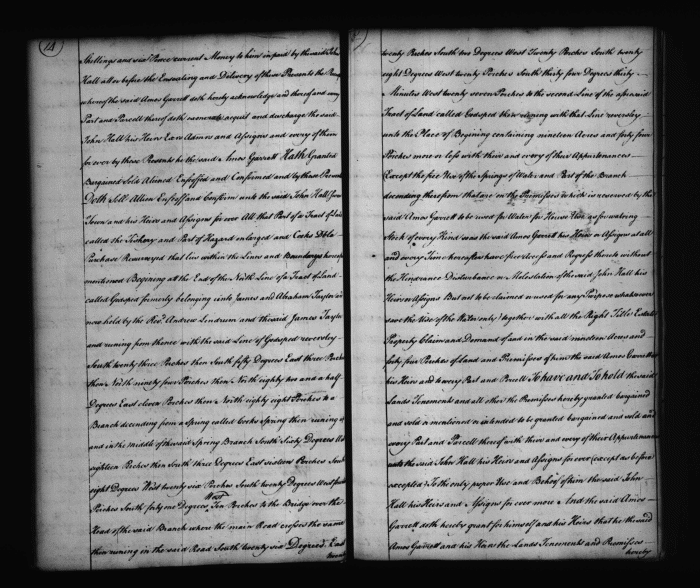 14
Shillings and six Pence current Money to him in paid by the said John
Hall at or before the Ensealing and Delivery of these Presents the
whereof the said Amos Garrett doth hereby acknowledge and thereof and every
Part and Parcell thereof doth exonerate acquit and discharge the said
John Hall his Heirs Exrs Admrs and Assigns and every of them
for ever by these Presents he the said Amos Garrett Hath Granted
Bargained Sold Aliened Enfeoffed and Confirmed and by these Presents
Doth Sell Alien Enfeoff and Confirm unto the said John Hall
and his Heirs and Assigns for ever All that Part of a Tract of Land
called the Fishery and Part of Hazard enlarged and Cooks Dble
Purchase Resurveyed that lies within the Lines and Boundarys
mentioned Begining at the End of the Ninth Line of a Tract of Land
called Godsped formerly belonging unto James and Abraham Taylor
now held by the Revd. Andrew Lendrum and the said James Taylor
and runing from thence with the said Line of Godsped reversley
South twenty three Perches then South fifty Degrees East three Perches
then North ninety four Perches then North eighty two and a half
Degrees East eleven Perches then North eighty eight Perches to a
Branch decending from a spring called Cooks Spring then runing
and in the middle of the said Spring Branch South Sixty Degrees
eighteen Perches then South three Degrees East sixteen Perches South
eight Degrees West twenty six Perches South twenty Degrees West
Perches South forty one Degrees West Ten Perches to the Bridge over the
Head of the said Branch where the main Road crosses the same
then runing in the said Road South twenty six Degrees East
twenty
twenty Perches South two Degrees West Twenty Perches South twenty
eight Degrees West twenty Perches South thirty four Degrees thirty
Minutes West twenty seven Perches to the second Line of the aforesaid
Tract of Land called Godsped then runing with that Line reversley
unto the Place of Begining containing nineteen Acres and forty four
Perches more or less with their and every of their Appurtenances
Except the free Use of the Springs of Water and Part of the Branch
decending therefrom that are on the Premisses which is reserved by the
said Amos Garrett to be used for Water for House Use as for watering
Stock of every Kind was the said Amos Garrett his Heirs or Assigns at all
and every Time hereafter have free Access and Regress thereto without
the Hindrance Disturbance or Molestation of the said John Hall his
Heirs or Assigns But not to be claimed or used for any Purpose whatsoever
save the Use of the Water only) together with all the Right Title Estate
Property Claim and Demand of Land in the said nineteen Acres and
forty four Perches of Land and Premisses of him the said Amos Garrett
his Heirs and to every Part and Parcell To have and To hold the said
Lands Tenements and all other the Premisses hereby granted bargained
and sold or mentioned or intended to be granted bargained and sold and
every Part and Parcell thereof with their and every of their Appurtenances
unto the said John Hall his Heirs and Assigns for ever (except as before
excepted) To the only proper Use and Behoof of him the said John
Hall his Heirs and Assigns for ever more And the said Amos
Garrett doth hereby grant for himself and his Heirs that he the said
Amos Garrett and his Heirs the Lands Tenements and Premisses
hereby